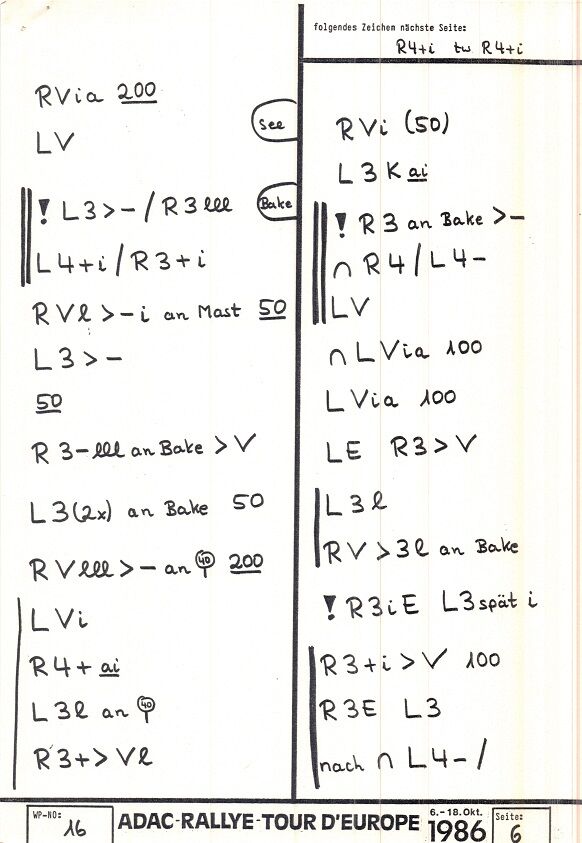 folgendes Zeichem nächste Seite:
R4+i tw R4+i
RVia 200
See
LV
! L3>-/R3lll
Bake
L4+i/R3+i
RVl>-i an Mast 50
L3>-
50
R3-lll an Bake >V
L3(2x) an Bake 50
RVlll>- an 40 200
LVi
R4+ ai
L3l an 40
R3+>Vl
RVi (50)
L3K ai
! R3 an Bake >-
∩ R4/L4-
LV
∩ LVia 100
LVia 100
LE R3>V
L3l
RV>3l an Bake
! R3iE L3spät i
R3+i>V 100
R3E L3
nach ∩ L4-/
WP-NO: 16
ADAC-RALLYE-TOUR D'EUROPE
6.-18.Okt. 1986
Seite: 6